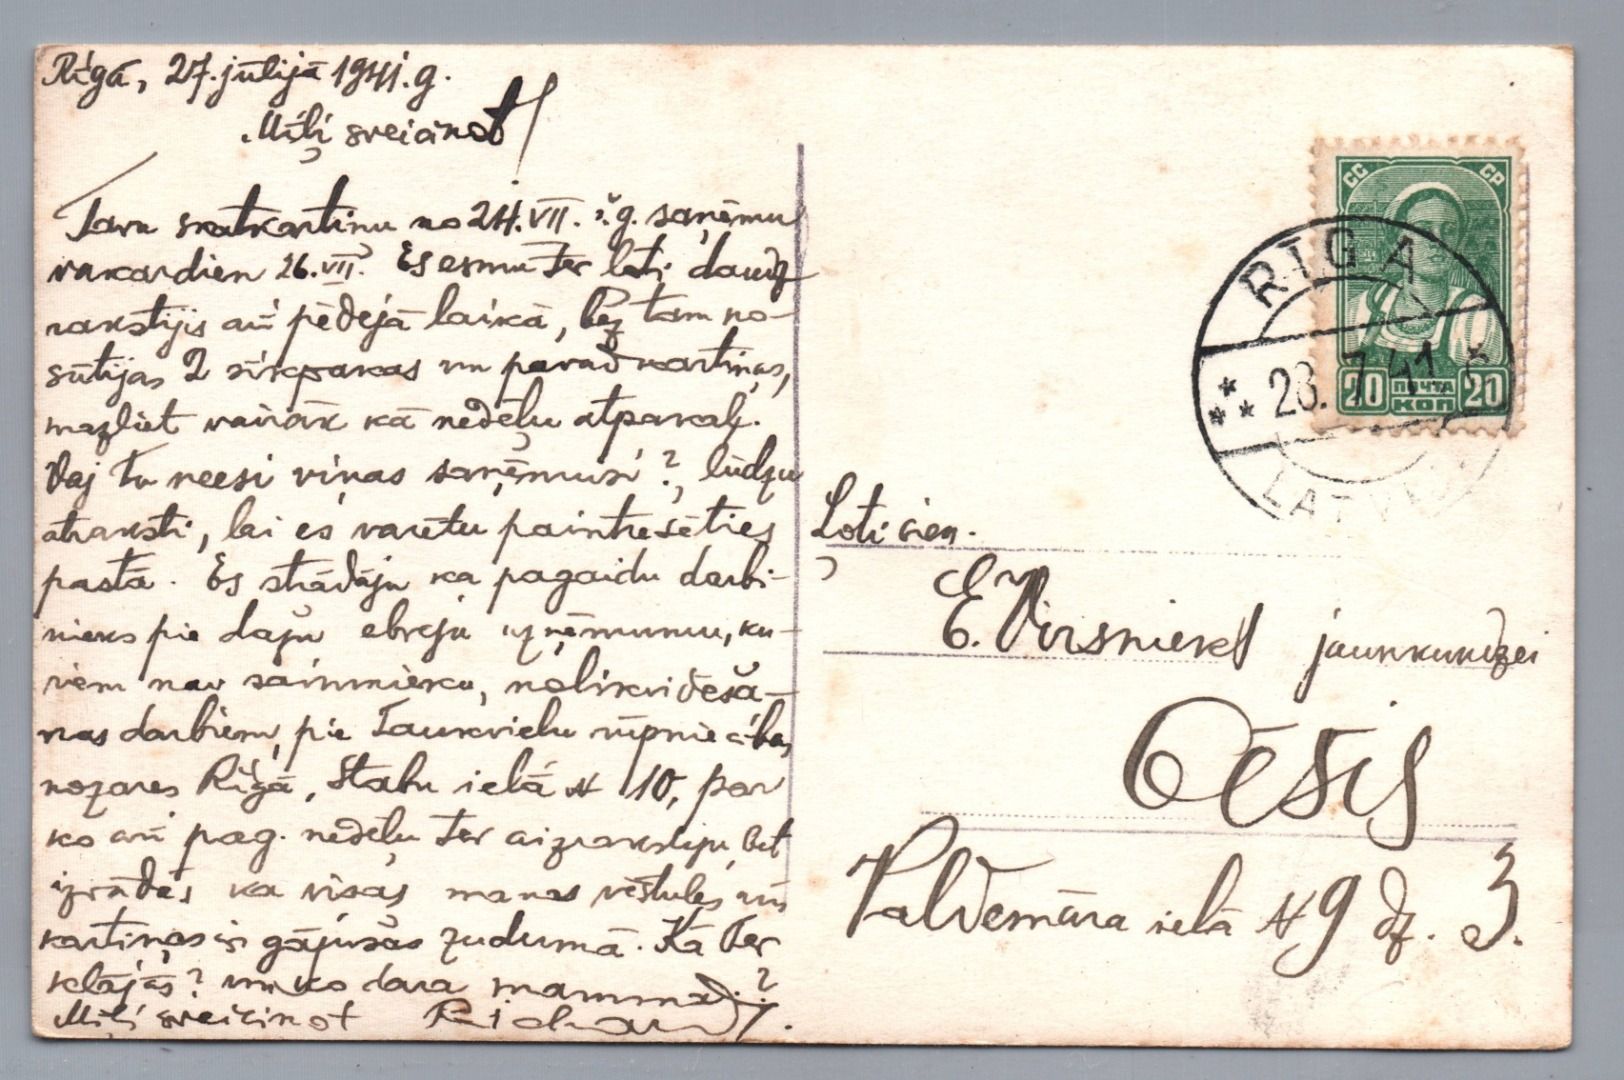 Rīgā, 27. jūlijā 1941. g.
Mīļi sveicinot!
Tavu skatkartiņu no 24. VII. š. g. saņēmu
vakardien 26. VII. Es esmu Tev ļoti daudz
rakstījis arī pēdējā laikā, bez tam no-
sūtījas 2 sīkpakas un pavadkartiņas,
mazliet vairāk kā nedēļu atpakaļ.
Vaj Tu neesi viņas saņēmusi?, lūdzu
atraksti, lai es varētu painteresēties
pastā. Es strādāju kā pagaidu darbi-
nieks pie dažu ebreju uzņēmumu, ku-
riem nav saimnieku, nolikvidēša-
nas darbiem, pie Taukvielu rūpniecības
nozares Rīgā, Stabu ielā № 10, par
ko arī pag. nedēļu Tev aizrakstīju, bet
izrādās ka visas manas vēstules un
kartiņas ir gājušas zudumā. Kā Tev
klājas? un ko dara mamma?
Mīļi sveicinot Richards.
СС СР
20 ПОЧТА КОП 20
RĪGA
28. 7 41
LATVIJA
Ļoti cien.
E. Virsnieks jaunkundzei
Cēsīs
Valdemāra ielā № 9 dz. 3.